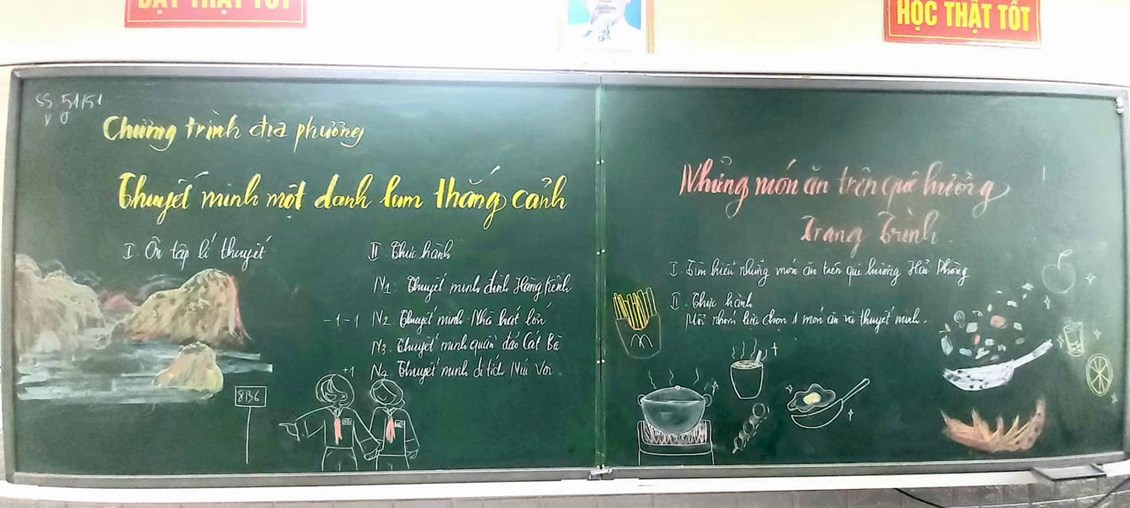 DẠY THẬT TỐT
HỌC THẬT TỐT
SS: 51/51
V O
Chương trình địa phương
Thuyết minh một danh lam thắng cảnh
I Ôn tập lí thuyết
II Thực hành
N1: Thuyết minh đình Hàng Kênh
-1-1 N2 Thuyết minh Nhà hát lớn
N3. Thuyết minh quần đảo Cát Bà
-1 N4 Thuyết minh di tích Núi Voi.
8B6
Những món ăn trên quê hương
Trạng Trình
I. Tìm hiểu những món ăn trên quê hương Hải Phòng
II. Thực hành
Mỗi nhóm lựa chọn 1 món ăn và thuyết minh.